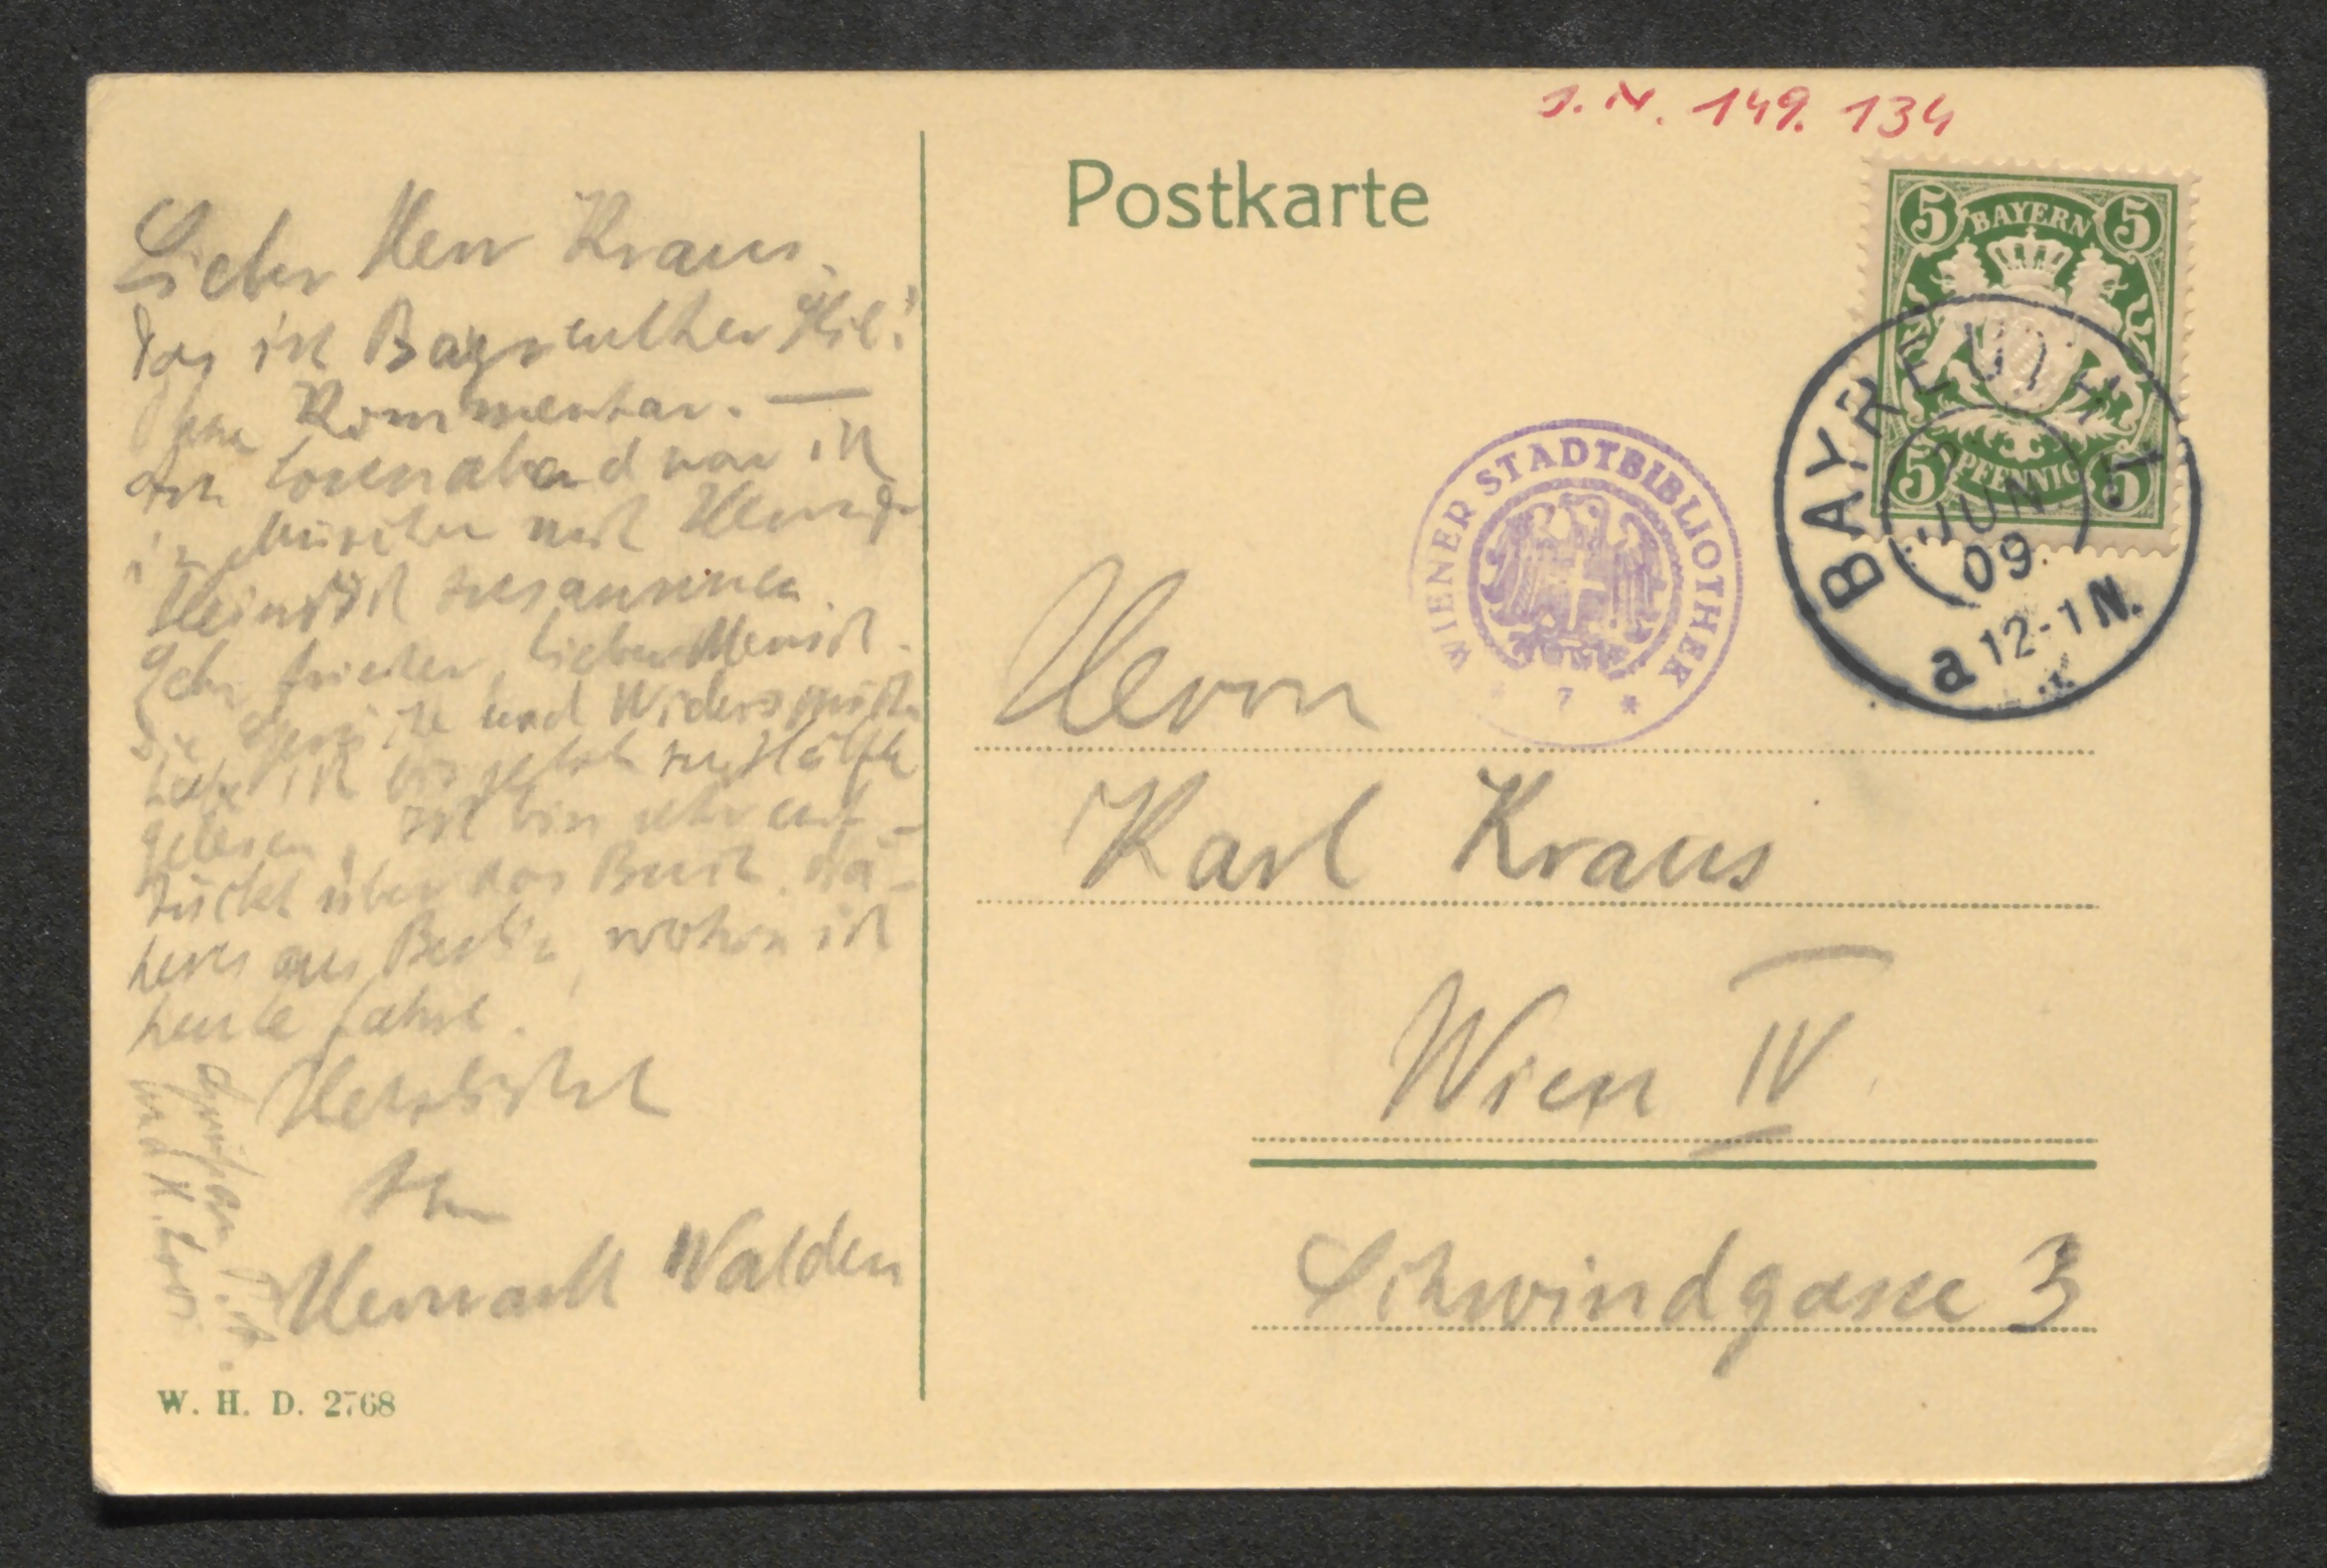 J. N. 149.134
Postkarte
5 BAYERN 5
5 PFENNIG 5
BAYREUTH 1
JUN
09.
a 12-1 N.
WIENER STADTBIBLIOTHEK
* 7 *
Lieber Herr Kraus,
das ist Bayreuther Stil!
Ohne Kommentar. —
Sonnabend war ich
in München mit
zusammen.
Sehr lieber Mensch.
Die Sprüche und Widersprüche
habe ich bis jetzt zur Hälfte
gelesen. Ich bin sehr ent-
zückt über das Buch. Nä-
heres aus Berlin, wohin ich
heute fahre.
Herzlichst
Ihr
Herwarth Walden
W. H. D. 2768
Herrn
Karl Kraus
Wien IV
Schwindgasse 3